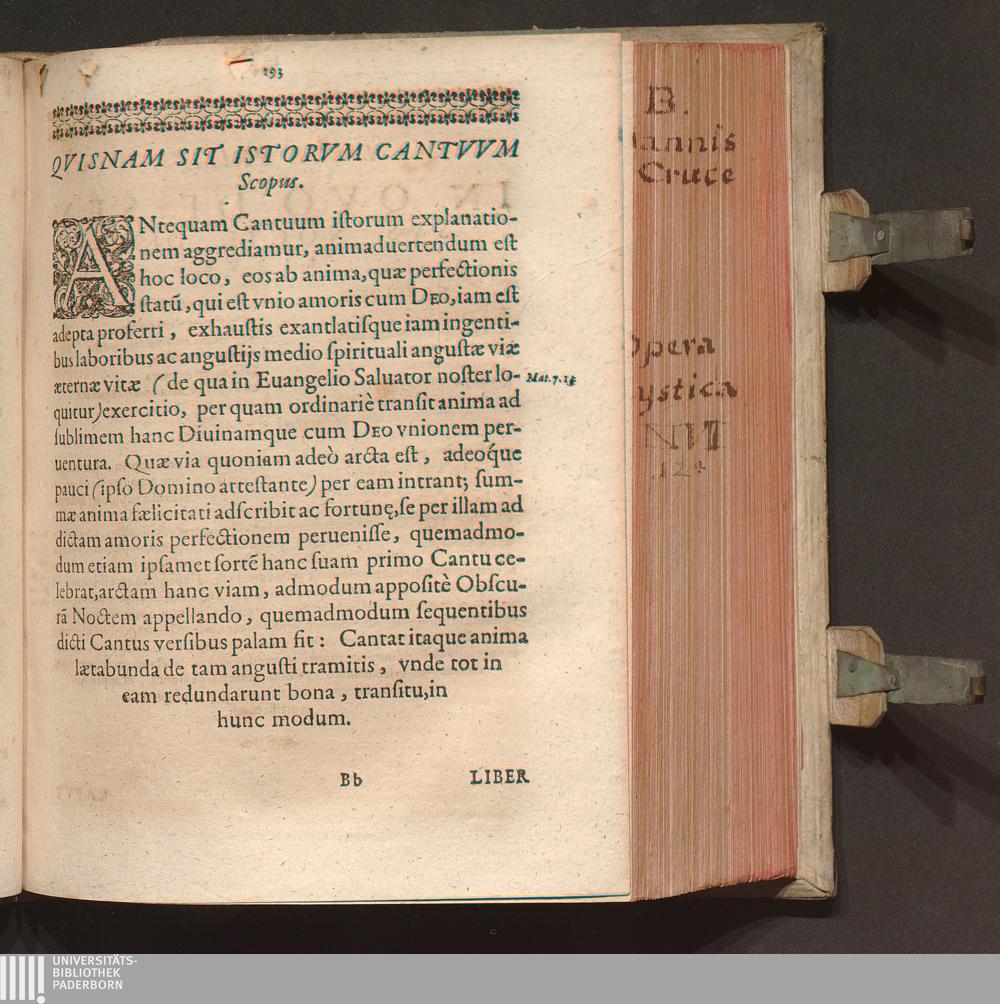 193
QVISNAM SIT ISTORVM CANTVVM
Scopus.
ANtequam Cantuum iſtorum explanatio-
nem aggrediamur, animaduertendum eſt
hoc loco, eos ab anima, quæ perfectionis
ſtatũ, qui eſt vnio amoris cum DEO, iam eſt
adepta proferri, exhauſtis exantlatiſque iam ingenti-
bus laboribus ac anguſtijs medio ſpirituali anguſtæ viæ
æternæ vitæ (de qua in Euangelio Saluator noſter lo-
quitur) exercitio, per quam ordinariè tranſit anima ad
ſublimem hanc Diuinamque cum DEO vnionem per-
uentura. Quæ via quoniam adeò arcta eſt, adeoq́ue
pauci (ipſo Domino atteſtante) per eam intrant; ſum-
mæ anima fælicitati adſcribit ac fortunę, ſe per illam ad
dictam amoris perfectionem perueniſſe, quemadmo-
dum etiam ipſamet ſortẽ hanc ſuam primo Cantu ce-
lebrat, arctam hanc viam, admodum appoſitè Obſcu-
rã Noctem appellando, quemadmodum ſequentibus
dicti Cantus verſibus palam fit: Cantat itaque anima
lætabunda de tam anguſti tramitis, vnde tot in
eam redundarunt bona, tranſitu, in
hunc modum.
Mat. 7. 14
Bb LIBER
B.
annis
Cruce
Opera
ystica
124
UNIVERSITÄTS-
BIBLIOTHEK
PADERBORN